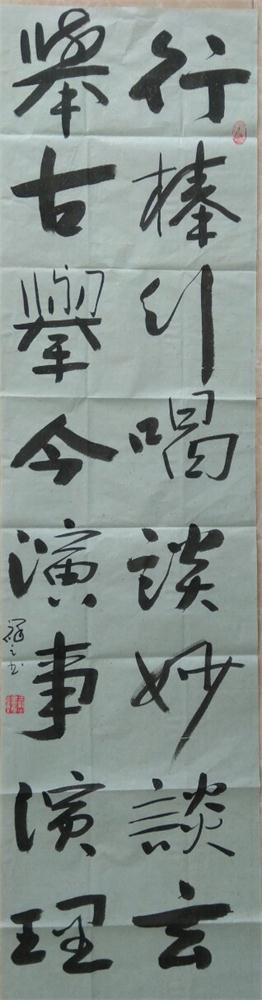 行棒行喝談妙談玄
舉古舉今演事演理